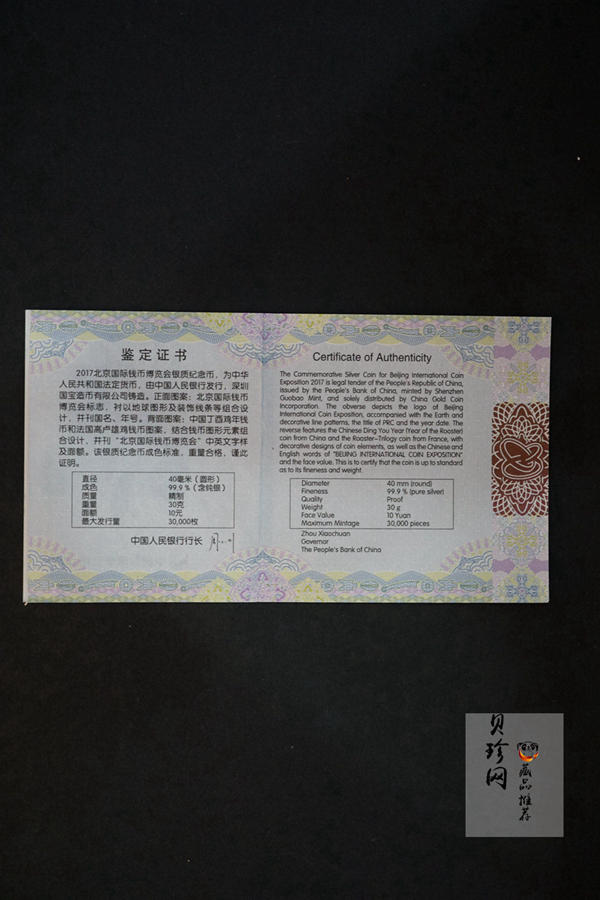 鉴定证书
2017北京国际钱币博览会银质纪念币，为中华
人民共和国法定货币，由中国人民银行发行，深圳
国宝造币有限公司铸造。正面图案：北京国际钱币
博览会标志，衬以地球图形及装饰线条等组合设
计，并刊国名、年号。背面图案：中国丁酉鸡年钱
币和法国高卢雄鸡钱币图案，结合钱币图形元素组
合设计，并刊“北京国际钱币博览会”中英文字样
及面额。该银质纪念币成色标准，重量合格，谨此
证明。
直径 40毫米（圆形）
成色 99.9％（含纯银）
质量 精制
重量 30克
面额 10元
最大发行量 30,000枚
中国人民银行行长
Certificate of Authenticity
The Commemorative Silver Coin for Beijing International Coin
Exposition 2017 is legal tender of the People's Republic of China,
issued by the People's Bank of China, minted by Shenzhen
Guobao Mint, and solely distributed by China Gold Coin
Incorporation. The obverse depicts the logo of Beijing
International Coin Exposition, accompanied with the Earth and
decorative line patterns, the title of PRC and the year date. The
reverse features the Chinese Ding You Year (Year of the Rooster)
coin from China and the Rooster-Trilogy coin from France, with
decorative designs of coin elements, as well as the Chinese and
English words of "BEIJING INTERNATIONAL COIN EXPOSITION"
and the face value. This is to certify that the coin is up to standard
as to its fineness and weight.
Diameter 40 mm (round)
Fineness 99.9 % (pure silver)
Quality Proof
Weight 30 g
Face Value 10 Yuan
Maximum Mintage 30,000 pieces
Zhou Xiaochuan
Governor
The People's Bank of China
贝珍网
藏品推荐